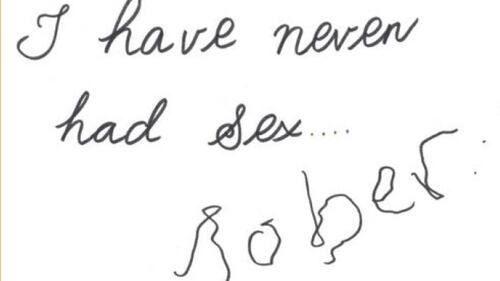 I have never
had sex....
sober.